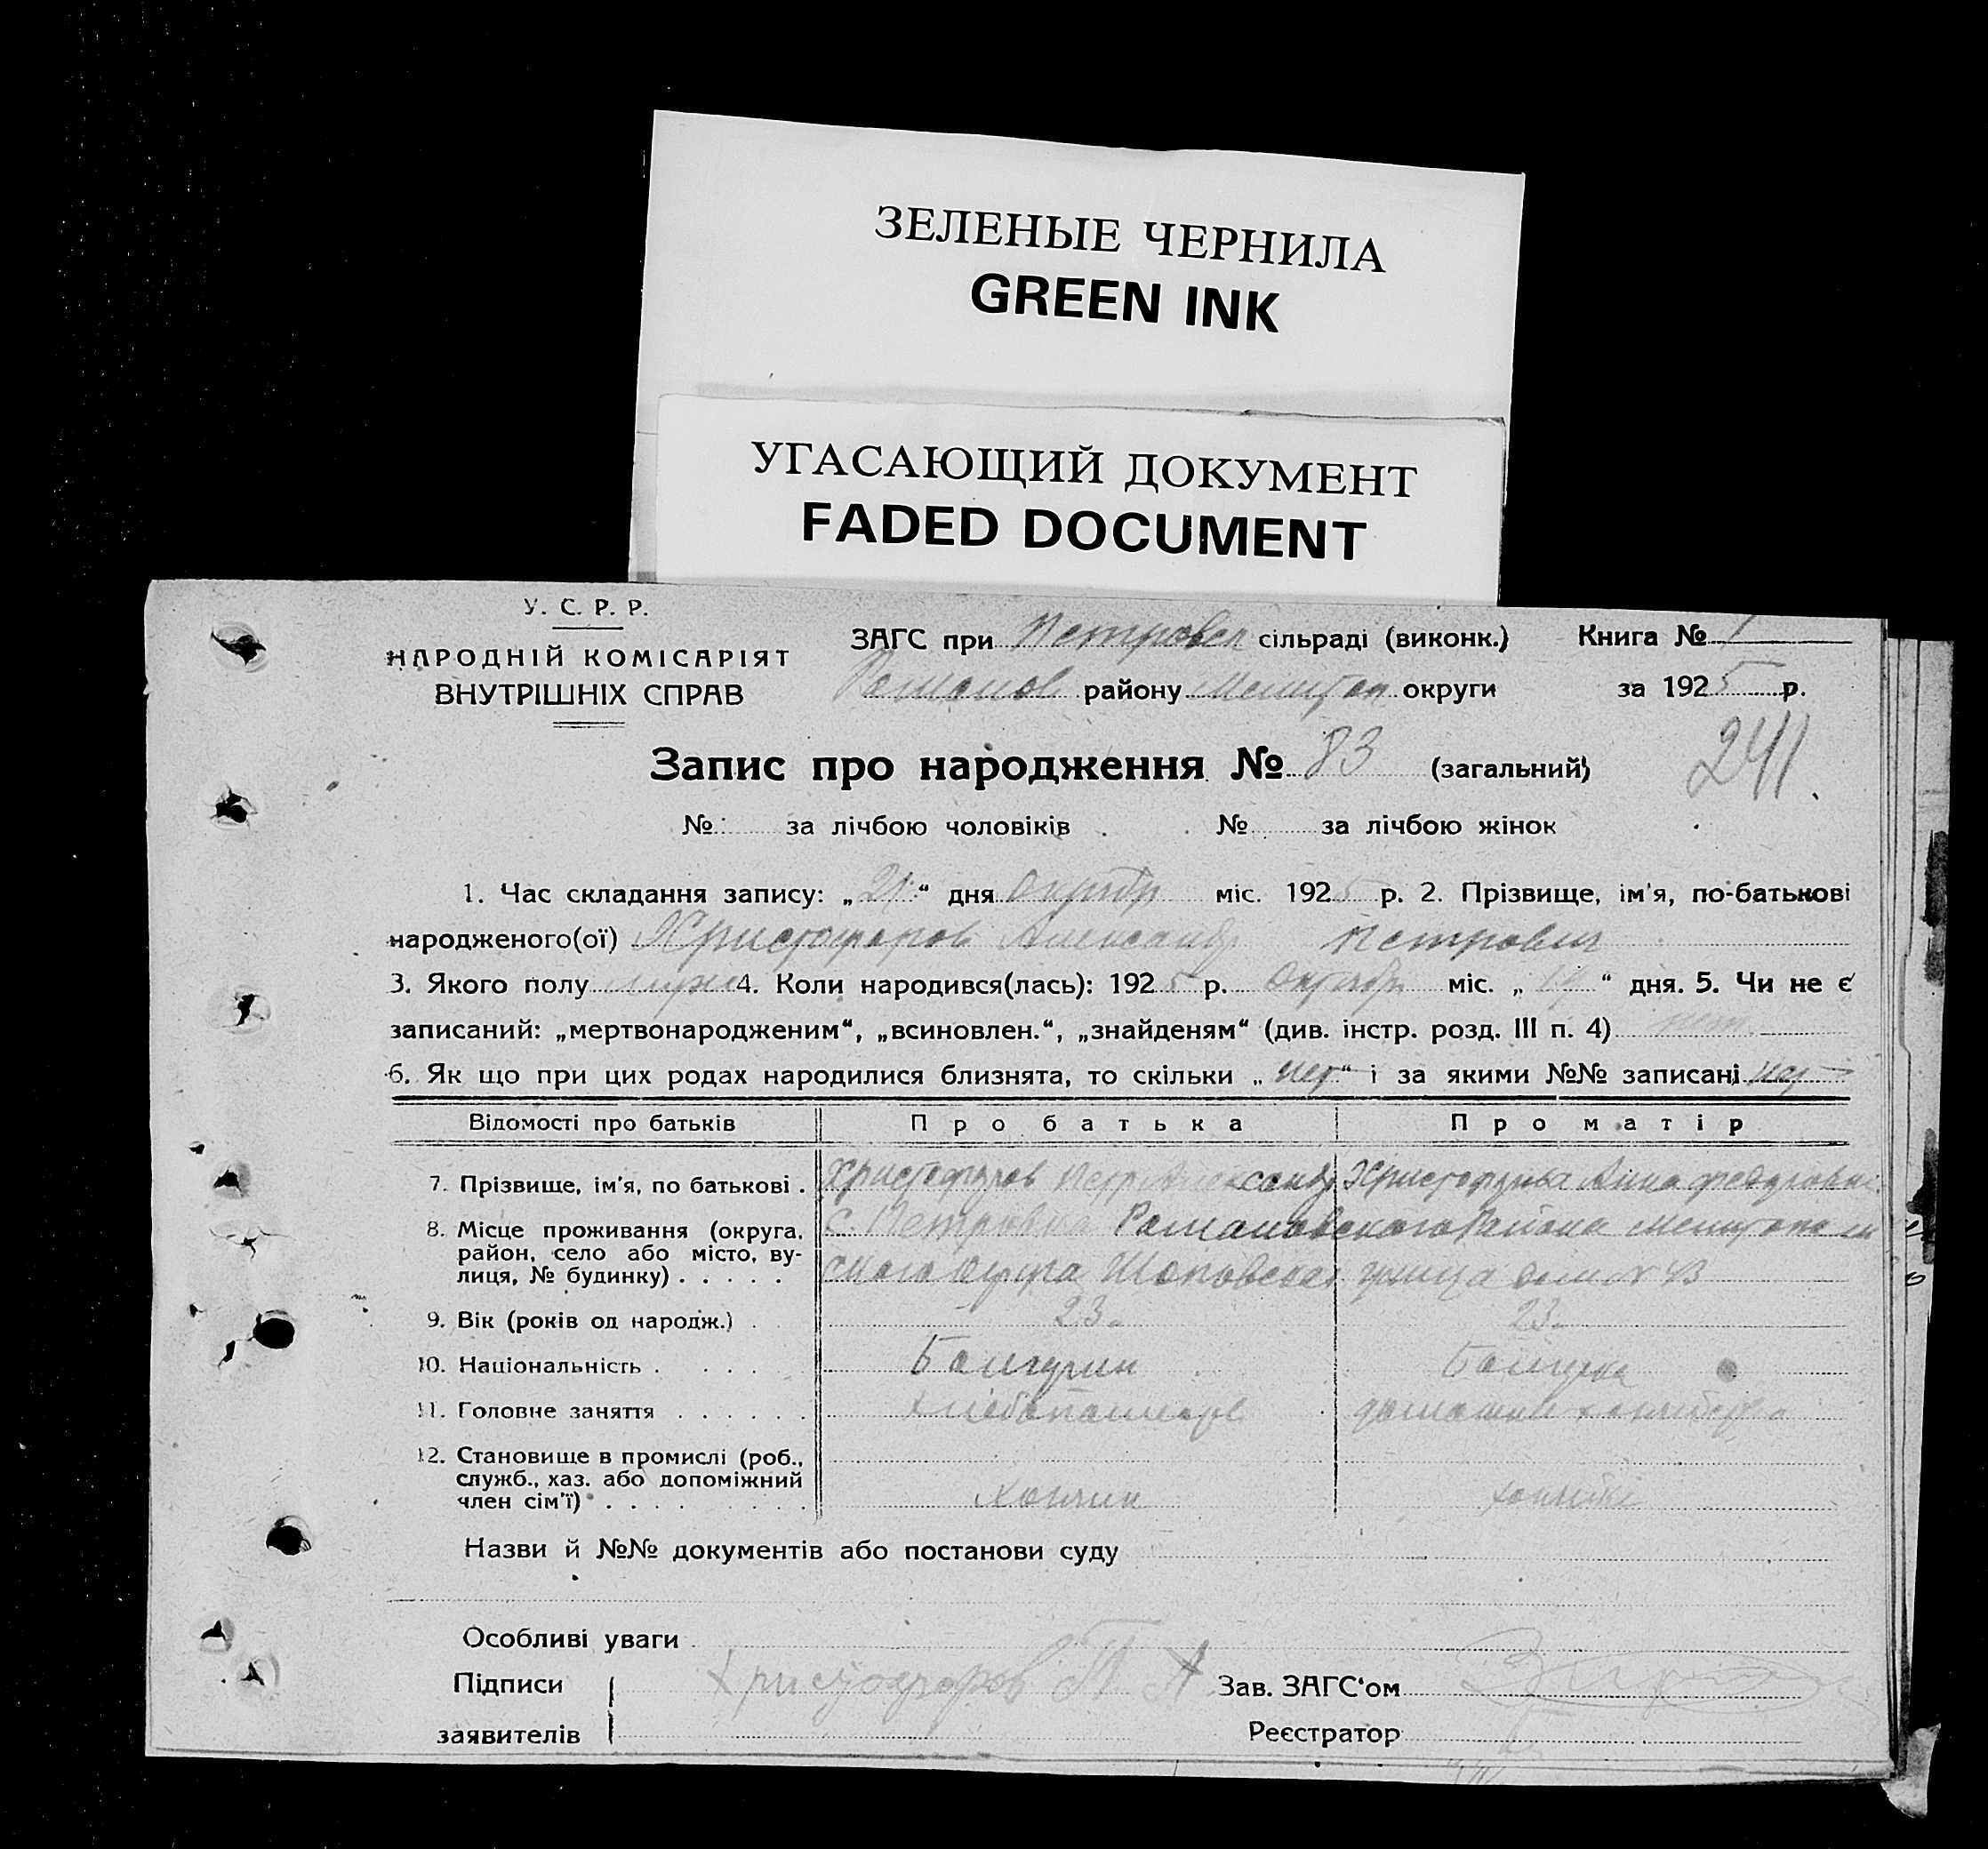 ЗЕЛЕНЫЕ ЧЕРНИЛА
GREEN INK
УГАСАЮЩИЙ ДОКУМЕНТ
FADED DOCUMENT
У. С. Р. Р.
НАРОДНІЙ КОМІСАРІЯТ
ВНУТРІШНІХ СПРАВ
ЗАГС при Петровск сільраді (виконк.) Книга № 1
Романов району Мелитоп округи за 1925 р.
241
Запис про народження № 83 (загальний)
№ за лічбою чоловіків № за лічбою жінок
1. Час складання запису: „21“ дня Октябр міс. 1925 р. 2. Прізвище, ім'я, по-батькові
народженого(ої) Христофоров Александр Петрович
3. Якого полу муж 4. Коли народився(лась): 1925 р. Октябр міс. „ “ дня. 5. Чи не є
записаний: „мертвонародженим“, „всиновлен.“, „знайденям“ (див. інстр. розд. III п. 4) нет
6. Як що при цих родах народилися близнята, то скільки „нет“ і за якими №№ записані нет
Відомості про батьків Про батька Про матір
7. Прізвище, ім'я, по батькові . Христофоров Петр Александр Христофорова Анна Федоровна
8. Місце проживання (округа, район, село або місто, вулиця, № будинку) . . . . . с. Петровка Романовского Района Мелитополь
ского округа улица дом №
9. Вік (років од народж.) . 23 23
10. Національність . . . . Болгарин Болгарка
11. Головне заняття . . . . . . хлебопашест домашн
12. Становище в промислі (роб., служб., хаз. або допоміжний член сім'ї) . . . . . . . . хозяин
Назви й №№ документів або постанови суду
Особливі уваги
Підписи Христофоров П А Зав. ЗАГС'ом
заявителів Реєстратор